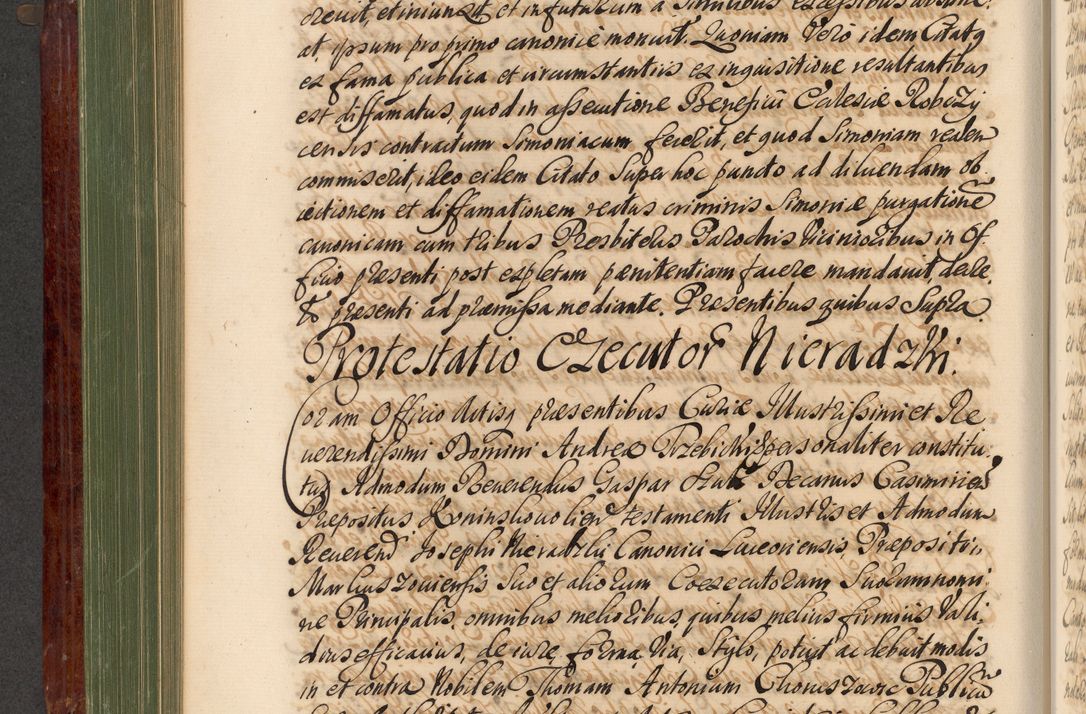 creuit, et iniunxit et in futurum a similibus excessibus
at, ipsum pro primo canonice monuit. Quoniam Vero idem Citatq
ex fama publica et circumstantiis ex inquisitione resultantibus
est diffamatus, quod in assecutione Beneficii Ecclesiæ Robczÿ
censis contractum Simoniacum fecerit, et quod Simoniam realem
commiserit, ideo eidem Citato Super hoc puncto ad diluendam ob
iectionem et diffamationem reatus criminis Simoniæ purgatione
canonicam cum tribus Presbiteris Parochis Vicinioribus in Of
ficio præsenti post expletam pænitentiam facere mandauit decre
to præsenti ad præmissa mediante. Præsentibus quibus Supra
Protestatio Exécutor Nieradzki.
Coram Officio Actisq præsentibus Curiæ Illustrissimi et Re
uerendissimi Domini Andreæ Trzebicki personaliter constitu
tus Admodum Reuerendus Gaspar Decanus Casimirien
Præpositus testamenti Illustris et Admodum
Reuerend Josephi Nieradzki Canonici Luceoriensis, Præpositi
Markuszouiensis Suo et aliorum Coexecutorum Suorum nomi
ne Principalis, omnibus melioribus, quibus melius firmius Vali
dius efficacius, de iure, forma, Via, Stylo, potuit ac debuit modis
in et contra Nobilem Thomam Antonium Publicu